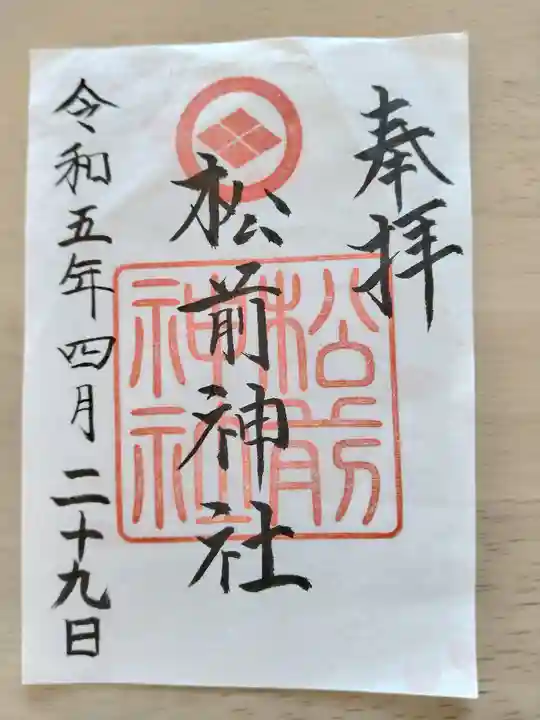 奉拝
松前神社
松前
神社
令和五年四月二十九日